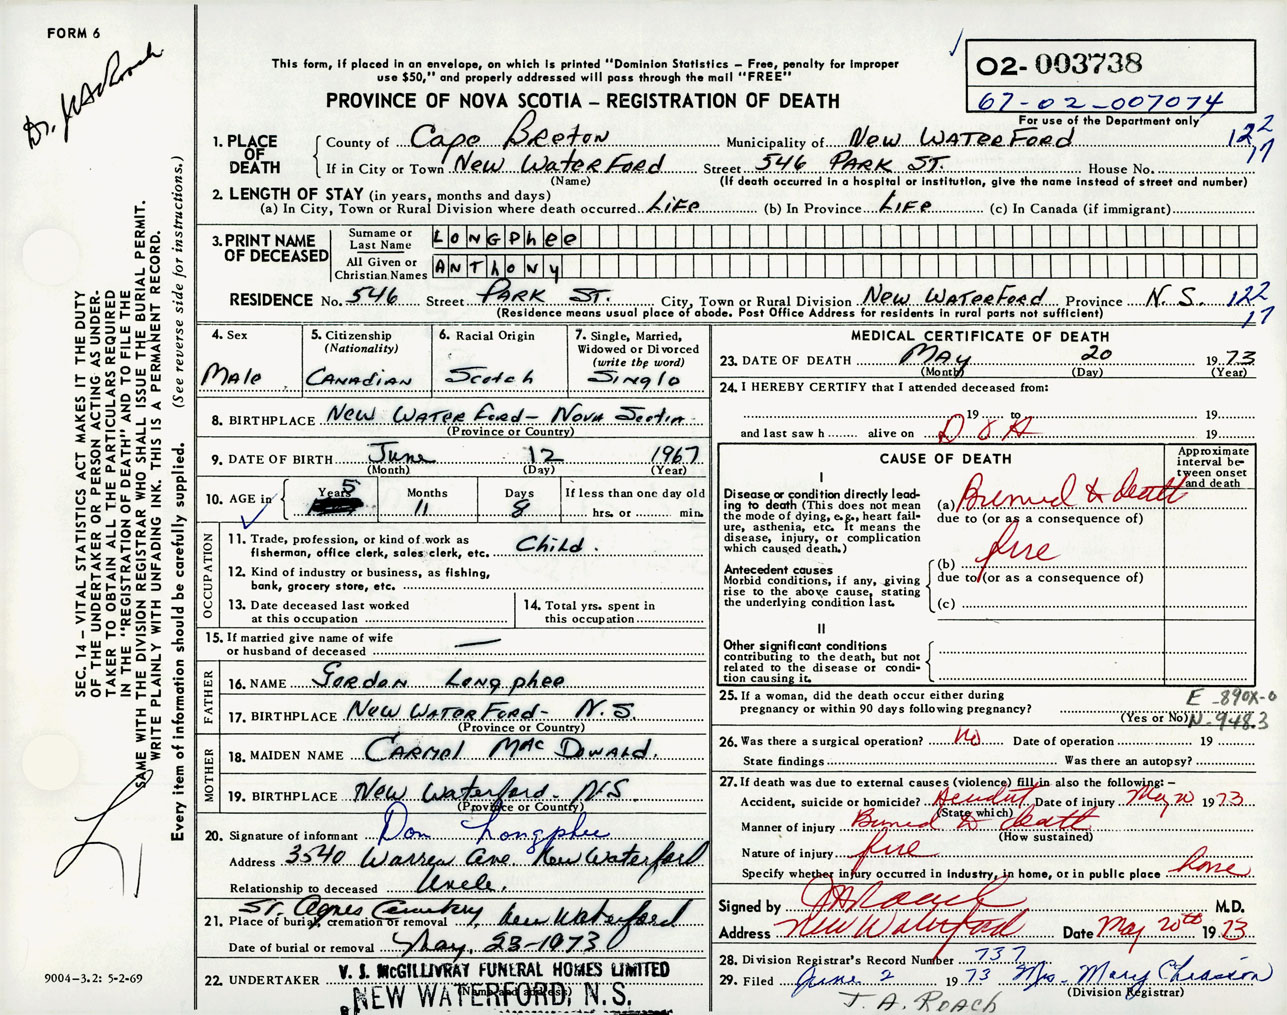 FORM 6
Dr. JA Roach
02-003738
67-02-007074
For use of the Department only
This form, if placed in an envelope, on which is printed "Dominion Statistics – Free, penalty for improper
use $50," and properly addressed will pass through the mail "FREE"
PROVINCE OF NOVA SCOTIA – REGISTRATION OF DEATH
1. PLACE OF DEATH County of Cape Breton Municipality of New Waterford 122
If in City or Town New Waterford Street 546 Park St. House No. 17
(Name) (If death occurred in a hospital or institution, give the name instead of street and number)
2. LENGTH OF STAY (in years, months and days)
(a) In City, Town or Rural Division where death occurred Life (b) In Province Life (c) In Canada (if immigrant)
3. PRINT NAME OF DECEASED Surname or Last Name LONGPhee
All Given or Christian Names ANThONy
RESIDENCE No. 546 Street Park St. City, Town or Rural Division New Waterford Province N.S. 122
(Residence means usual place of abode. Post Office Address for residents in rural parts not sufficient) 17
4. Sex Male
5. Citizenship (Nationality) Canadian
6. Racial Origin Scotch
7. Single, Married, Widowed or Divorced (write the word) Single
8. BIRTHPLACE New Waterford – Nova Scotia
(Province or Country)
9. DATE OF BIRTH June 12 1967
(Month) (Day) (Year)
10. AGE in Years 5 Months 11 Days 8 If less than one day old
hrs. or min.
OCCUPATION
11. Trade, profession, or kind of work as
fisherman, office clerk, sales clerk, etc. Child.
12. Kind of industry or business, as fishing,
bank, grocery store, etc.
13. Date deceased last worked
at this occupation
14. Total yrs. spent in
this occupation
15. If married give name of wife
or husband of deceased —
FATHER
16. NAME Gordon Longphee
17. BIRTHPLACE New Waterford – N.S.
(Province or Country)
MOTHER
18. MAIDEN NAME Carmel MacDonald.
19. BIRTHPLACE New Waterford – N.S.
(Province or Country)
20. Signature of informant Don Longphee
Address 3540 Warren Ave New Waterford
Relationship to deceased Uncle.
21. Place of burial, cremation or removal St. Agnes Cemetery, New Waterford
Date of burial or removal May, 23-1973
22. UNDERTAKER V. J. McGILLIVRAY FUNERAL HOMES LIMITED
(Name and address)
NEW WATERFORD, N.S.
MEDICAL CERTIFICATE OF DEATH
23. DATE OF DEATH May 20 1973
(Month) (Day) (Year)
24. I HEREBY CERTIFY that I attended deceased from:
19 to 19
and last saw h alive on D O A 19
CAUSE OF DEATH
Approximate interval between onset and death
I
Disease or condition directly leading to death (This does not mean the mode of dying, e.g., heart failure, asthenia, etc. It means the disease, injury, or complication which caused death.)
(a) Burned to death
due to (or as a consequence of)
Antecedent causes
Morbid conditions, if any, giving rise to the above cause, stating the underlying condition last.
(b) fire
due to (or as a consequence of)
(c)
II
Other significant conditions
contributing to the death, but not related to the disease or condition causing it.
25. If a woman, did the death occur either during
pregnancy or within 90 days following pregnancy?
(Yes or No)
E-890X-0
N-948.3
26. Was there a surgical operation? No Date of operation 19
State findings Was there an autopsy?
27. If death was due to external causes (violence) fill in also the following:–
Accident, suicide or homicide? Accident Date of injury May 20 1973
(State which)
Manner of injury Burned to death
(How sustained)
Nature of injury fire
Specify whether injury occurred in industry, in home, or in public place home
Signed by JA Roach M.D.
Address New Waterford Date May 20th 1973
28. Division Registrar's Record Number 737
29. Filed June 2 1973 Mrs. Mary Chiasson
(Division Registrar)
J. A. ROACH
SEC. 14 – VITAL STATISTICS ACT MAKES IT THE DUTY
OF THE UNDERTAKER OR PERSON ACTING AS UNDER-
TAKER TO OBTAIN ALL THE PARTICULARS REQUIRED
IN THE "REGISTRATION OF DEATH" AND TO FILE THE
SAME WITH THE DIVISION REGISTRAR WHO SHALL ISSUE THE BURIAL PERMIT.
WRITE PLAINLY WITH UNFADING INK. THIS IS A PERMANENT RECORD.
Every item of information should be carefully supplied. (See reverse side for instructions.)
9004–3.2: 5-2-69